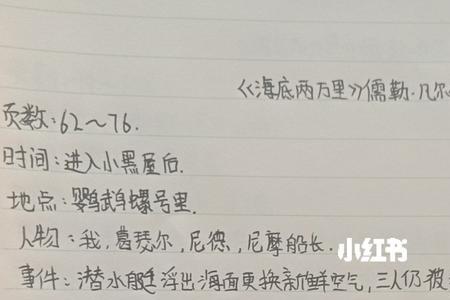 《海底两万里》儒勒·凡尔
页数:62～76.
时间:进入小黑屋后.
地点:鹦鹉螺号里.
人物:我,葛瑟尔,尼德,尼摩船长.
小红书
事件:潜水艇浮出海面更换新鲜空气,三人仍被